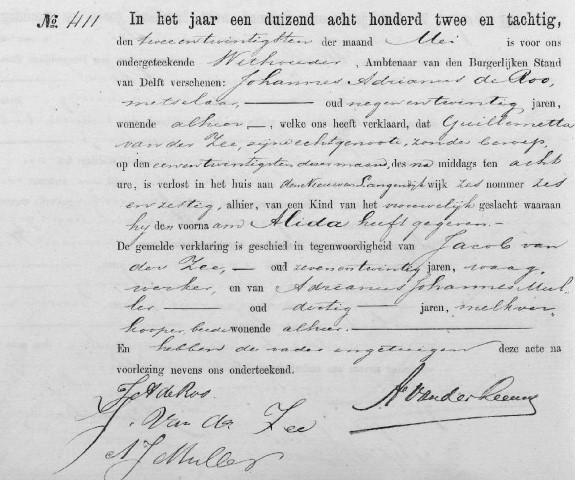 No. 411 In het jaar een duizend acht honderd twee en tachtig,
den tweeentwintigsten der maand Mei is voor ons
ondergeteekende Wethouder, Ambtenaar van den Burgerlijken Stand
van Delft verschenen: Johannes Adrianus de Roo,
metselaar, oud negenentwintig jaren,
wonende alhier, welke ons heeft verklaard, dat Guillemetta
van der Zee, zijne echtgenoote, zonder beroep,
op den eenentwintigsten dezer maand, des na middags ten acht
ure, is verlost in het huis aan den Nieuwen Langendijk wijk zes nommer zes
en zestig, alhier, van een Kind van het vrouwelijk geslacht waaraan
hij den voornaam Alida heeft gegeven.
De gemelde verklaring is geschied in tegenwoordigheid van Jacob van
der Zee, oud zevenentwintig jaren, waag
werker, en van Adrianus Johannes Mul
ler oud dertig jaren, melkver
kooper, beide wonende alhier.
En hebben de vader en getuigen deze acte na
voorlezing nevens ons onderteekend.
J A de Roo
Van der Zee
A J Muller
van der Leeuw